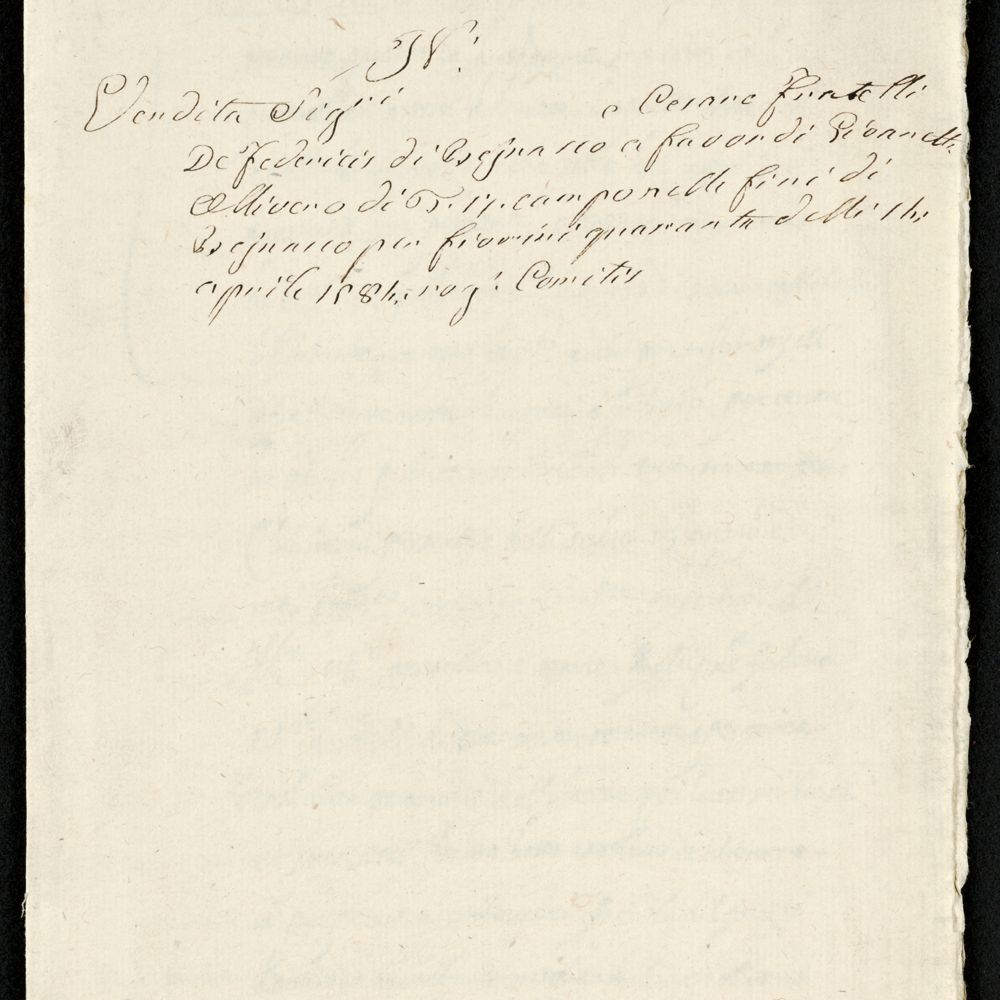 N.
Vendita Sig.ri e Cesare fratelli
De Federicis di a favor di Giovanelli
Ollivero di T. 11. campo nelle fini di
per fiorini quaranta delli 14.
aprile 1584. rog. Comitis